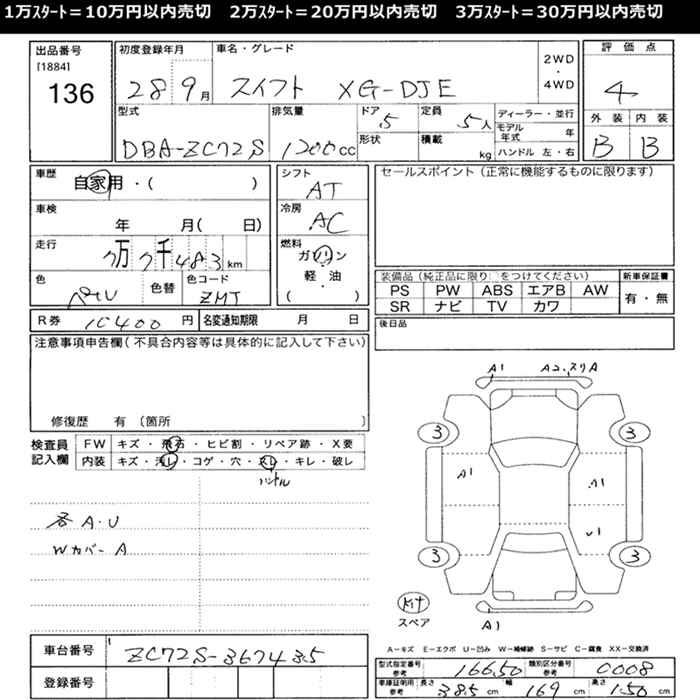 1万ｽﾀｰﾄ＝10万円以内売切　2万ｽﾀｰﾄ＝20万円以内売切　3万ｽﾀｰﾄ＝30万円以内売切
出品番号
[1884]
136
初度登録年月
28 9月
車名・グレード
スイフト XG-DJE
2WD
・
4WD
評価点
4
外装 内装
B B
型式
DBA-ZC72S
排気量
1200cc
ドア
5
定員
5人
形状
積載
kg
ディーラー・並行
モデル年式 年
ハンドル 左・右
車歴
自家用・( )
車検
年 月( 日)
走行
7万7千483km
色
パール
色替
色コード
ZMT
シフト
AT
冷房
AC
燃料
ガソリン
軽・油
( )
セールスポイント（正常に機能するものに限ります）
装備品（純正品に限り○をつけてください）
PS PW ABS エアB AW
SR ナビ TV カワ
新車保証書
有・無
後日品
R券 10400円
名変通知期限 月 日
注意事項申告欄（不具合内容等は具体的に記入して下さい）
修復歴 有（箇所 ）
検査員
記入欄
FW キズ・飛石・ヒビ割・リペア跡・X要
内装 キズ・汚レ・コゲ・穴・スレ・キレ・破レ
ハンドル
各A・U
WカバーA
A1
3 3
A1 A1
U1
3 3
スペア
A1
A－キズ E－エクボ U－凹み W－補修跡 S－サビ C－腐食 XX－交換済
車台番号
ZC72S-367435
登録番号
型式指定番号
参考
16650
類別区分番号
参考
0008
車庫証明用
参考
長さ 385cm 幅 169cm 高さ 150cm